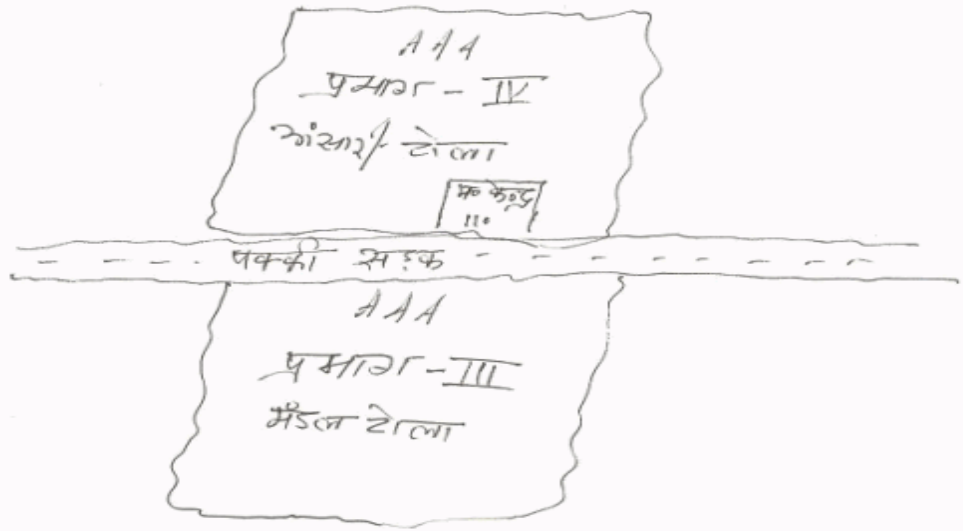 AAA
प्रभाग - IV
अंसारी टोला
म० केन्द्र
110
पक्की सड़क
AAA
प्रभाग - III
मँडल टोला